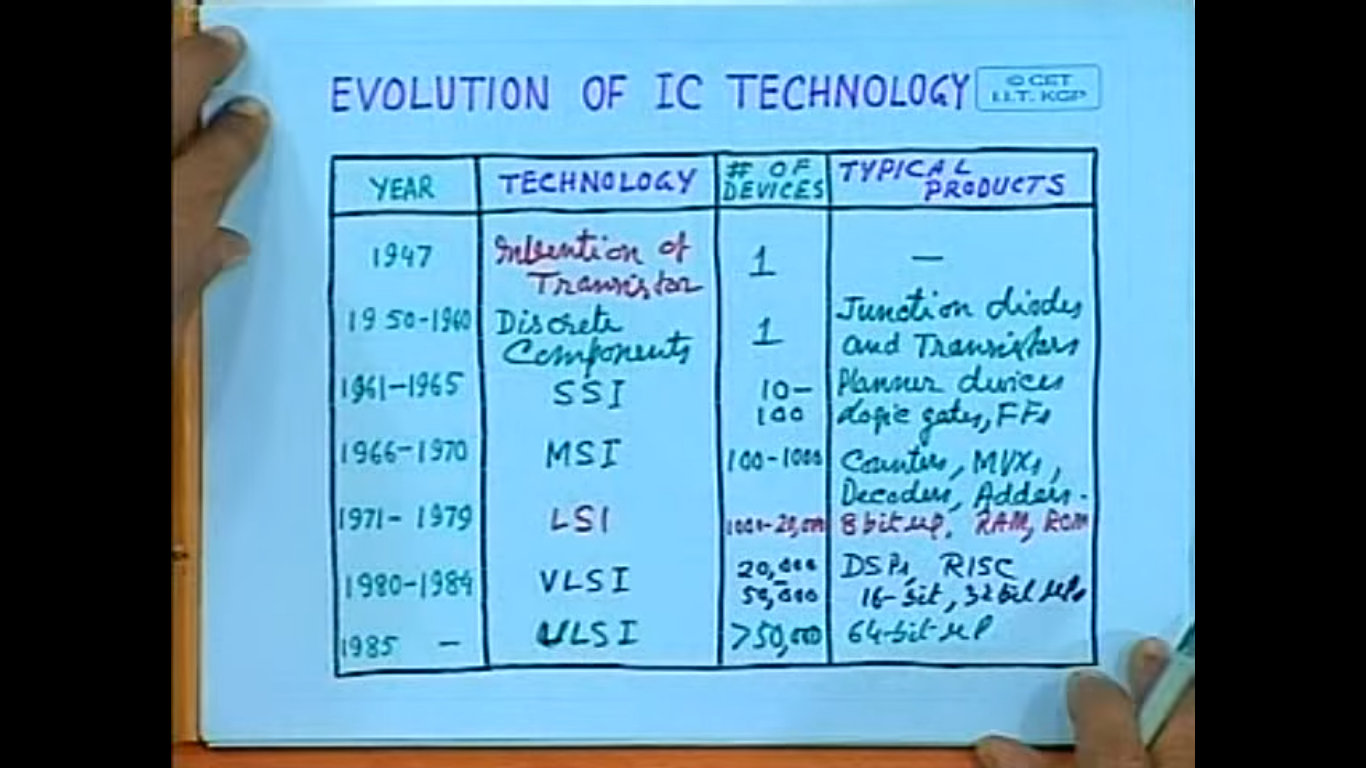 EVOLUTION OF IC TECHNOLOGY
© CET
I.I.T. KGP
YEAR TECHNOLOGY # OF DEVICES TYPICAL PRODUCTS
1947 Invention of Transistor 1 —
1950-1960 Discrete Components 1 Junction diodes and Transistors
1961-1965 SSI 10-100 Planner devices Logic gates, FFs
1966-1970 MSI 100-1000 Counters, MUXs, Decoders, Adders.
1971-1979 LSI 1000-20,000 8 bit μp, RAM, ROM
1980-1984 VLSI 20,000-50,000 DSPs, RISC 16-bit, 32 bit μPs
1985 — ULSI >50,000 64-bit μP